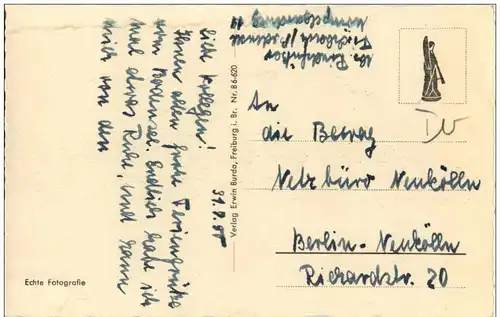 31.7.55
Liebe Kollegen!
Ihnen allen frohe Feriengrüße
vom Bodensee. Endlich hab ich
mal etwas Ruhe, und kann
mich von den
Verlag Erwin Burda, Freiburg i. Br. Nr. B 6-620
Echte Fotografie
An
die Bewag
Netzbüro Neukölln
Berlin-Neukölln
Richardstr. 20